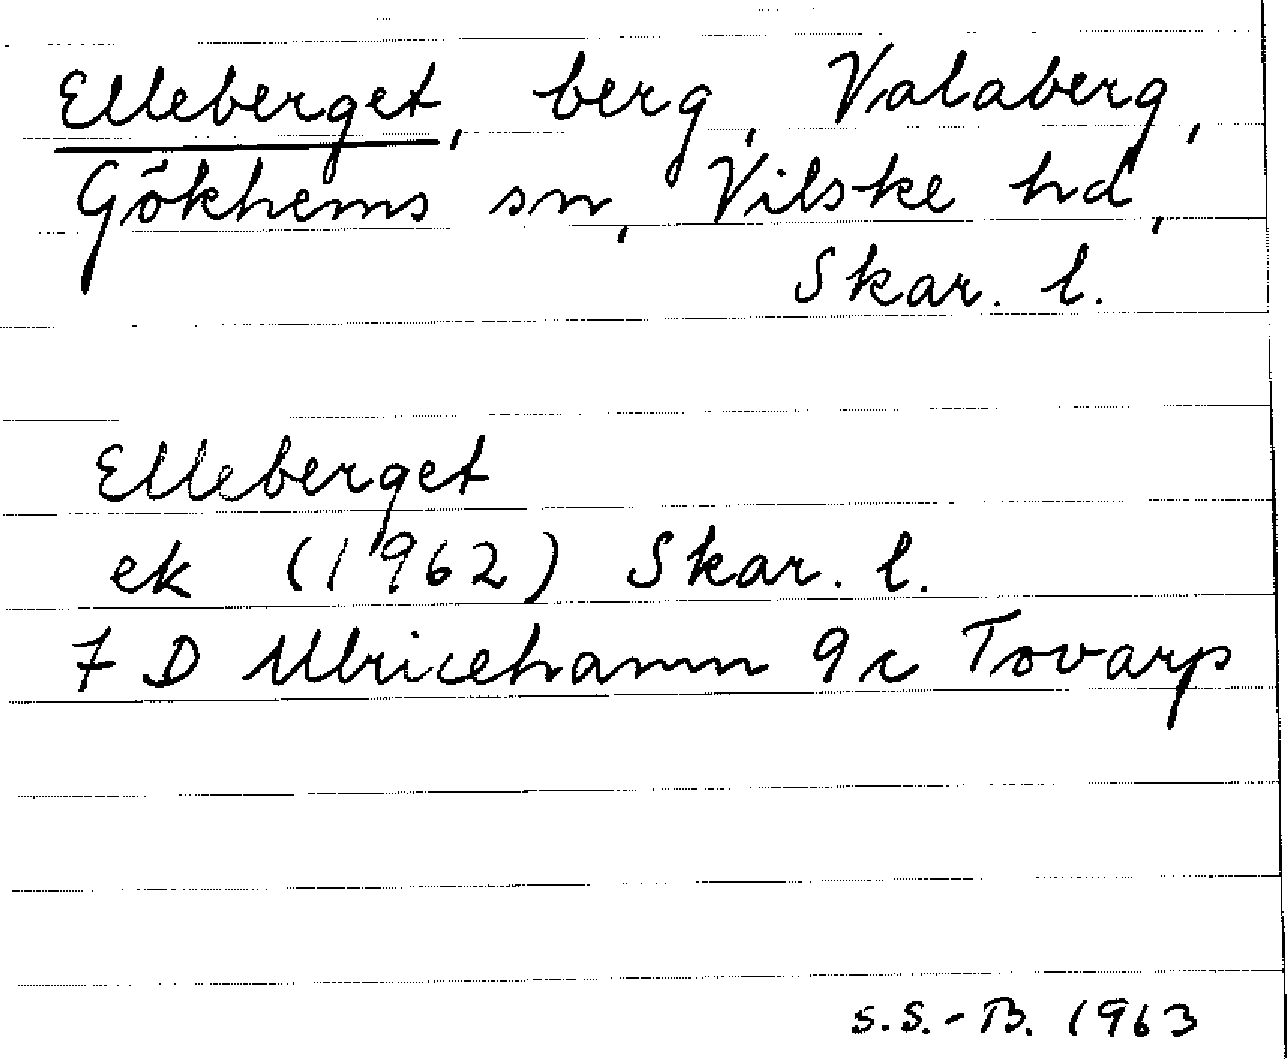 Elleberget, berg, Valaberg,
Gökhems sn, Vilske hd,
Skar. l.
Elleberget
ek (1962) Skar. l.
7 D Ulricehamn 9 c Tovarp
S.S.-B. 1963